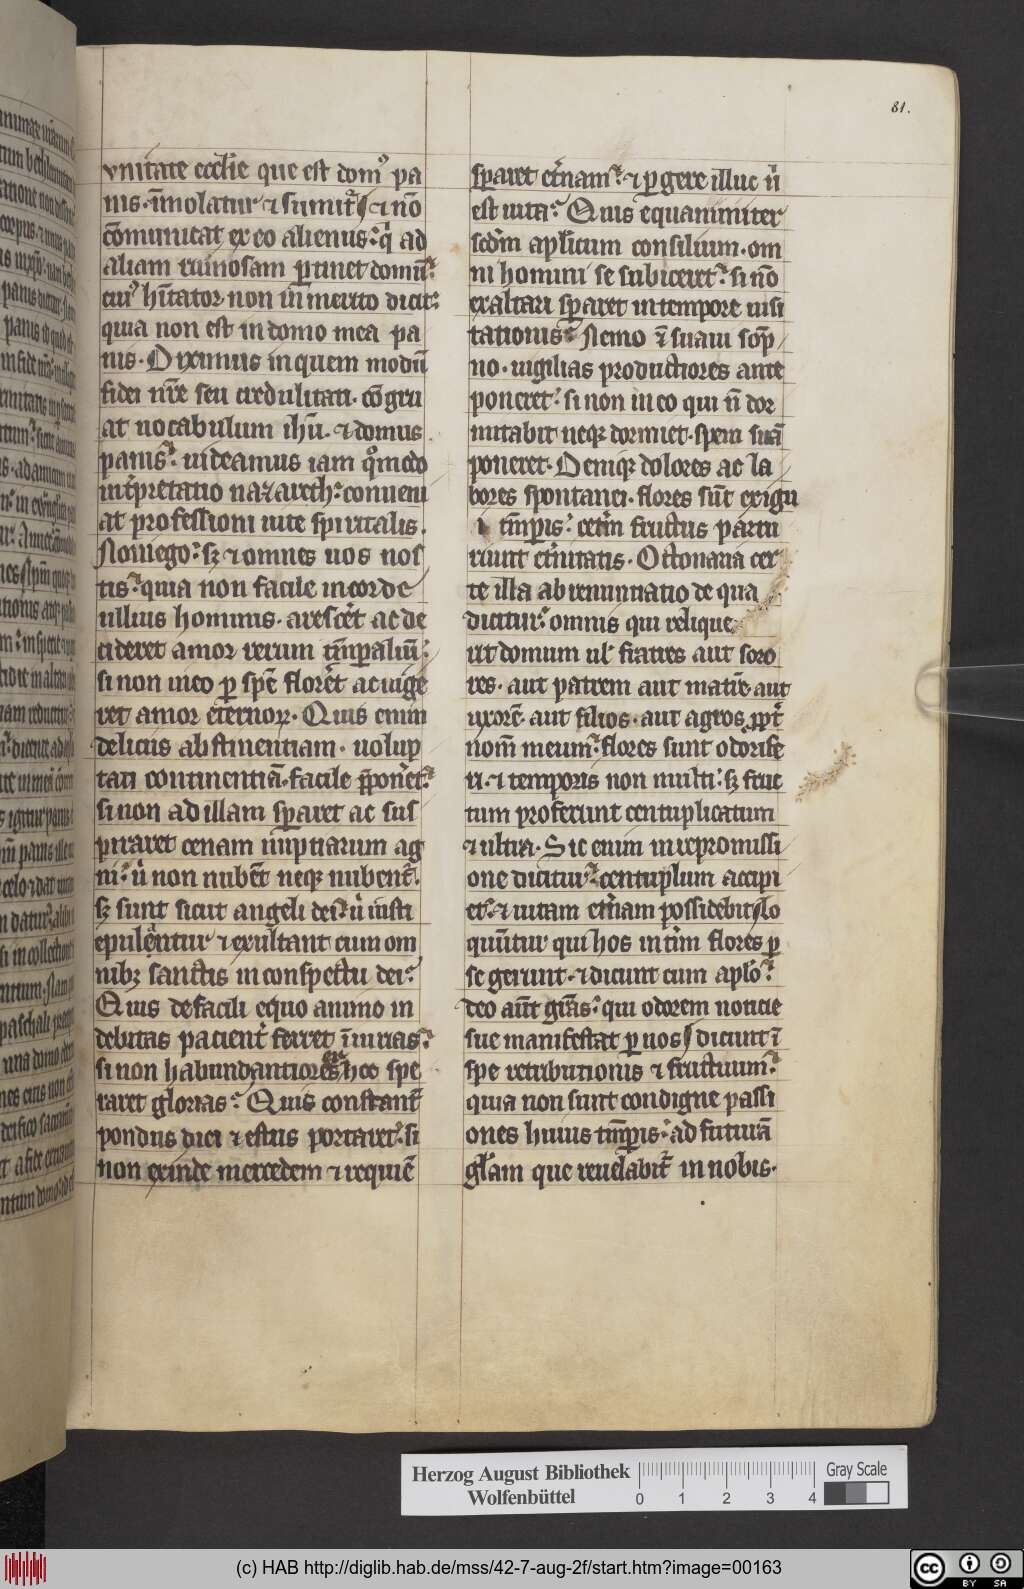 81.
vnitate eccl'ie que est domꝰ pa
nis. īmolatur ⁊ sumit᷑ ⁊ nō
cōmunicat ex eo alienus. q̇ ad
aliam ruinosam ꝑtinet domū.
cuiꝰ hītator non īmerito dicit.
quia non est in domo mea pa
nis. Diximus in quem modū
fidei nr̄e seu credulitati. cōgru
at uocabulum ihū. ⁊ domus
panis. uideamus iam qͦmodo
int̉pretatio nazareth. conueni
at professioni uite spiritalis.
Noui ego. sꝫ ⁊ omnes uos nos
tis. quia non facile in corde
illius hominis. aresc̉et ac de
cideret amor rerum tm̄ꝑaliū.
si non in eo ꝑ spē flor̉et ac uige
ret amor eternoꝝ. Quis enim
deliciis abstinentiam. uolup
tati continentiā. facile p̄pon̉et.
si non ad illam sꝑaret ac sus
piraret cenam nuptiarum ag
ni. u̇ non nubēt neqꝫ nubent᷑.
sꝫ sunt sicut angeli dei. u̇ iusti
epulentur ⁊ exultant cum om
nibꝫ sanctis in conspectu dei.
Quis de facili equo animo in
debitas pacient̉ ferret īiurias.
si non habundantiores hoc spe
raret glorias. Quis constant̉
pondus diei ⁊ estus portaret. si
non exinde mercedem ⁊ requiē
sꝑaret et̉nam. ⁊ ꝑgere illuc u̇
est uita. Quis equanimiter
scd̄m apl'icum consilium. om
ni homini se subiceret. si nō
exaltari sꝑaret in tempore uisi
tationis. Nemo ē suaui somp
no. uigilias productiores ante
poneret. si non in eo qui n̄ dor
mitabit neqꝫ dormiet. spem suā
poneret. Deniqꝫ dolores ac la
bores spontanei. flores sūt exigu
i tm̄ꝑis. cet̉m fructus partu
riunt et̉nitatis. Octonaria cer
te illa abrenuntiatio de qua
dicitur. omnis qui relique
rit domum ul' fratres aut soro
res. aut patrem aut matrē aut
uxorē. aut filios. aut agros ꝓpt̉
nom̄ meum. flores sunt odorife
ri. ⁊ temporis non multi. sꝫ fruc
tum proferunt centuplicatum
⁊ ultra. Sic enim in repromissi
one dicitur. centuplum accipi
et. ⁊ uitam et̉nam possidebit. Lo
quūtur qui hos int̉im flores ꝑ
se gerunt. ⁊ dicunt cum apl'o.
deo aūt gr̄as. qui odorem noticie
sue manifestat ꝑ uos. dicunt ī
spe retributionis ⁊ fructuum.
quia non sunt condigne passi
ones huius tm̄ꝑis. ad futurā
gl'am que reuelabit᷑ in nobis.
Herzog August Bibliothek
Wolfenbüttel
0 1 2 3 4
Gray Scale
(c) HAB http://diglib.hab.de/mss/42-7-aug-2f/start.htm?image=00163
cc BY SA